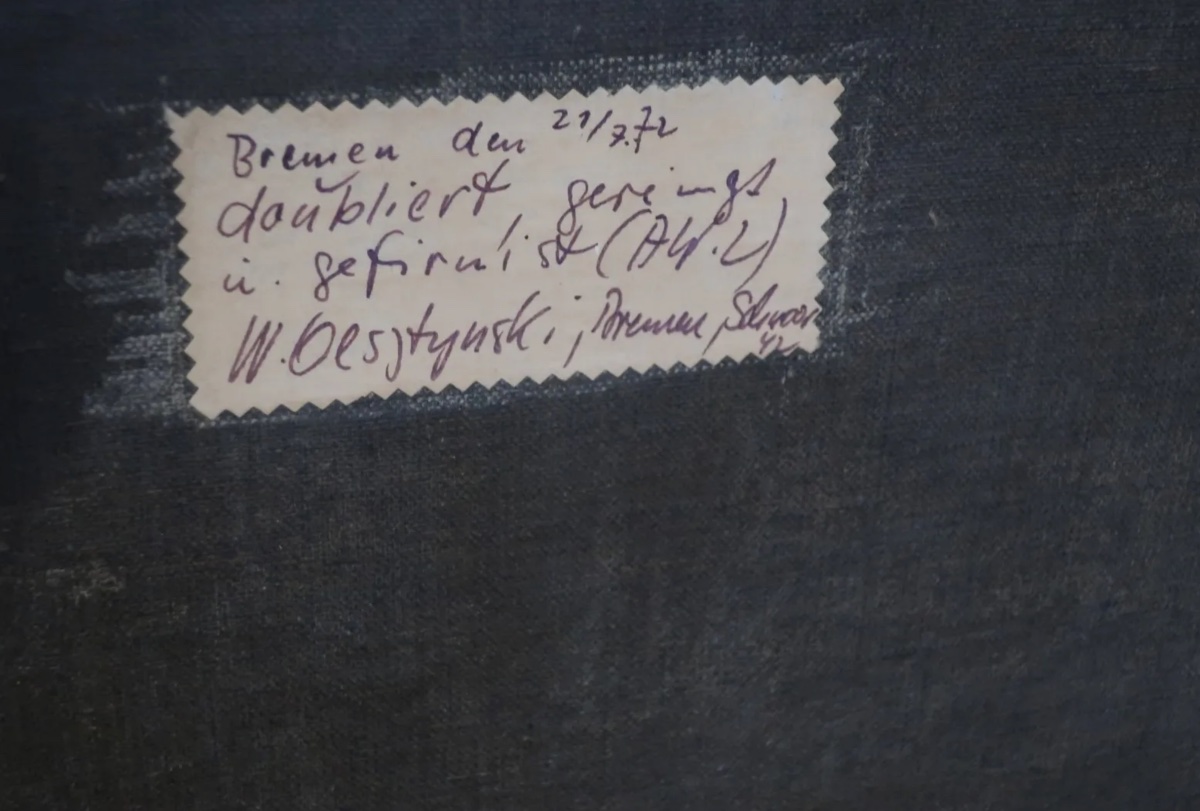 Bremen den 21/7.72
doubliert, gereinigt
u. gefirnist (AW.2)
W. Olsztynski, Bremen,
42